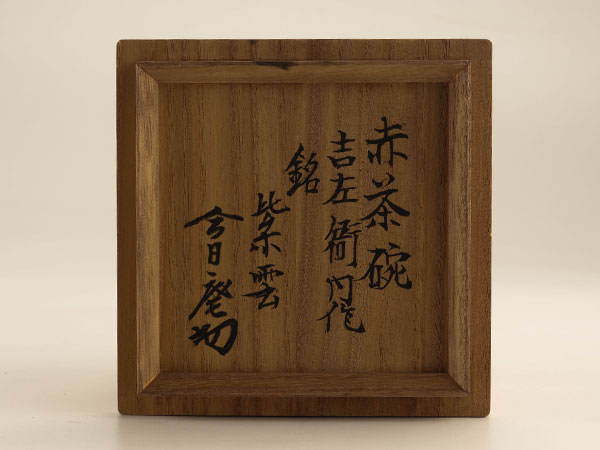 赤茶碗
吉左衛門作
銘
紫雲
今日庵